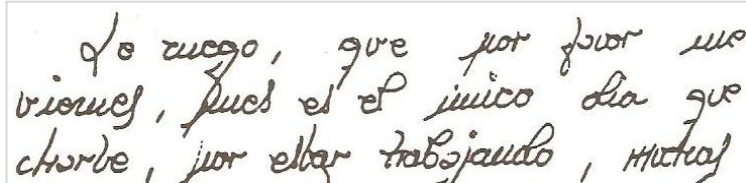 Le ruego, que por favor me
viernes, pues es el único dia que
charle, por estar trabajando, muchas